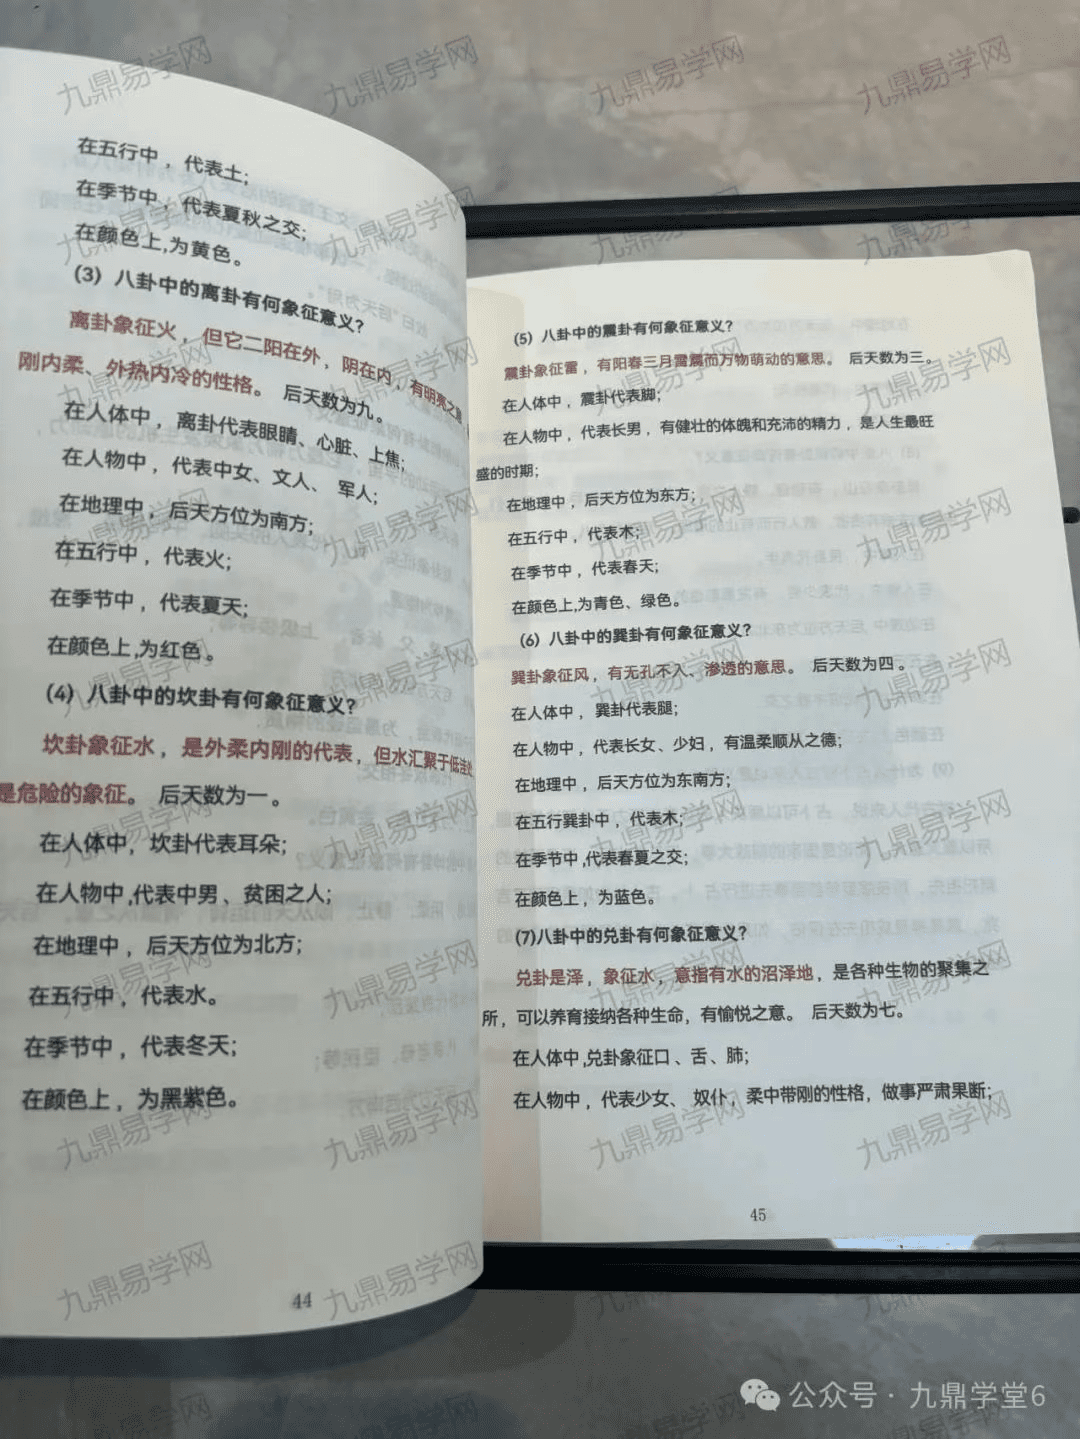 在五行中，代表土；
在季节中，代表夏秋之交；
在颜色上,为黄色。
（3）八卦中的离卦有何象征意义？
离卦象征火，但它二阳在外，阴在内，有明亮之意，
刚内柔、外热内冷的性格。 后天数为九。
在人体中，离卦代表眼睛、心脏、上焦；
在人物中，代表中女、文人、 军人；
在地理中，后天方位为南方；
在五行中，代表火；
在季节中，代表夏天；
在颜色上,为红色。
（4）八卦中的坎卦有何象征意义？
坎卦象征水，是外柔内刚的代表，但水汇聚于低洼处
是危险的象征。 后天数为一。
在人体中，坎卦代表耳朵；
在人物中,代表中男、贫困之人；
在地理中，后天方位为北方；
在五行中，代表水。
在季节中，代表冬天；
在颜色上，为黑紫色。
44
（5）八卦中的震卦有何象征意义？
震卦象征雷，有阳春三月雷震而万物萌动的意思。 后天数为三。
在人体中，震卦代表脚；
在人物中，代表长男，有健壮的体魄和充沛的精力，是人生最旺
盛的时期；
在地理中，后天方位为东方；
在五行中，代表木；
在季节中，代表春天；
在颜色上,为青色、绿色。
（6）八卦中的巽卦有何象征意义？
巽卦象征风，有无孔不入、渗透的意思。 后天数为四。
在人体中，巽卦代表腿；
在人物中，代表长女、少妇，有温柔顺从之德；
在地理中，后天方位为东南方；
在五行巽卦中，代表木；
在季节中,代表春夏之交；
在颜色上，为蓝色。
(7)八卦中的兑卦有何象征意义？
兑卦是泽，象征水，意指有水的沼泽地，是各种生物的聚集之
所，可以养育接纳各种生命，有愉悦之意。 后天数为七。
在人体中,兑卦象征口、舌、肺；
在人物中，代表少女、 奴仆，柔中带刚的性格，做事严肃果断；
45
九鼎易学网
公众号 · 九鼎学堂6